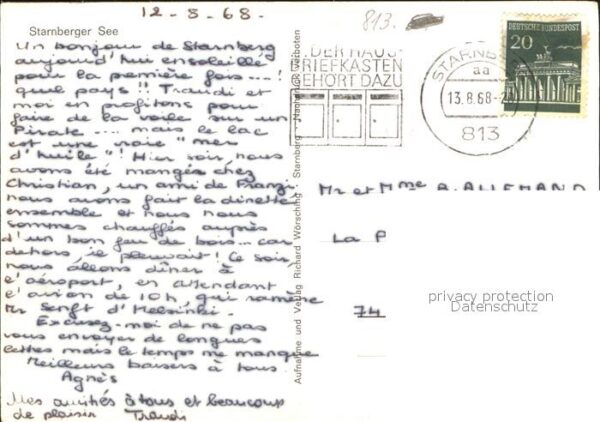 12-8-68.
813.
Starnberger See
Un bonjour de Starnberg
aujourd'hui ensoleillé
pour la première fois...!
quel pays!! Traudi et
moi en profitons pour
faire de la voile sur un
Pirate.... mais le lac
est une vraie "mer
d'huile"! Hier soir, nous
avons été mangés chez
Christian, un ami de Franzi
nous avons fait la dinette
ensemble et nous nous
sommes chauffés auprès
d'un bon feu de bois... car
dehors, il pleuvait! Ce soir,
nous allons dîner à
l'aéroport, en attendant
l'avion de 10h, qui ramène
Mr Senft d'Helsinki.
Excusez-moi de ne pas
vous envoyer de longues
lettres mais le temps me manque
Meilleurs baisers à tous.
Agnès
Mes amitiés à tous et beaucoup
de plaisir Traudi
Aufnahme und Verlag Richard Wörsching · Starnberg · Nachdruck verboten
DER HAUS-
BRIEFKASTEN
GEHÖRT DAZU
STARNB
aa
13.8.68-2
813
DEUTSCHE BUNDESPOST
20
Mr et Mme A. ALLEMAND
La P
74
privacy protection
Datenschutz